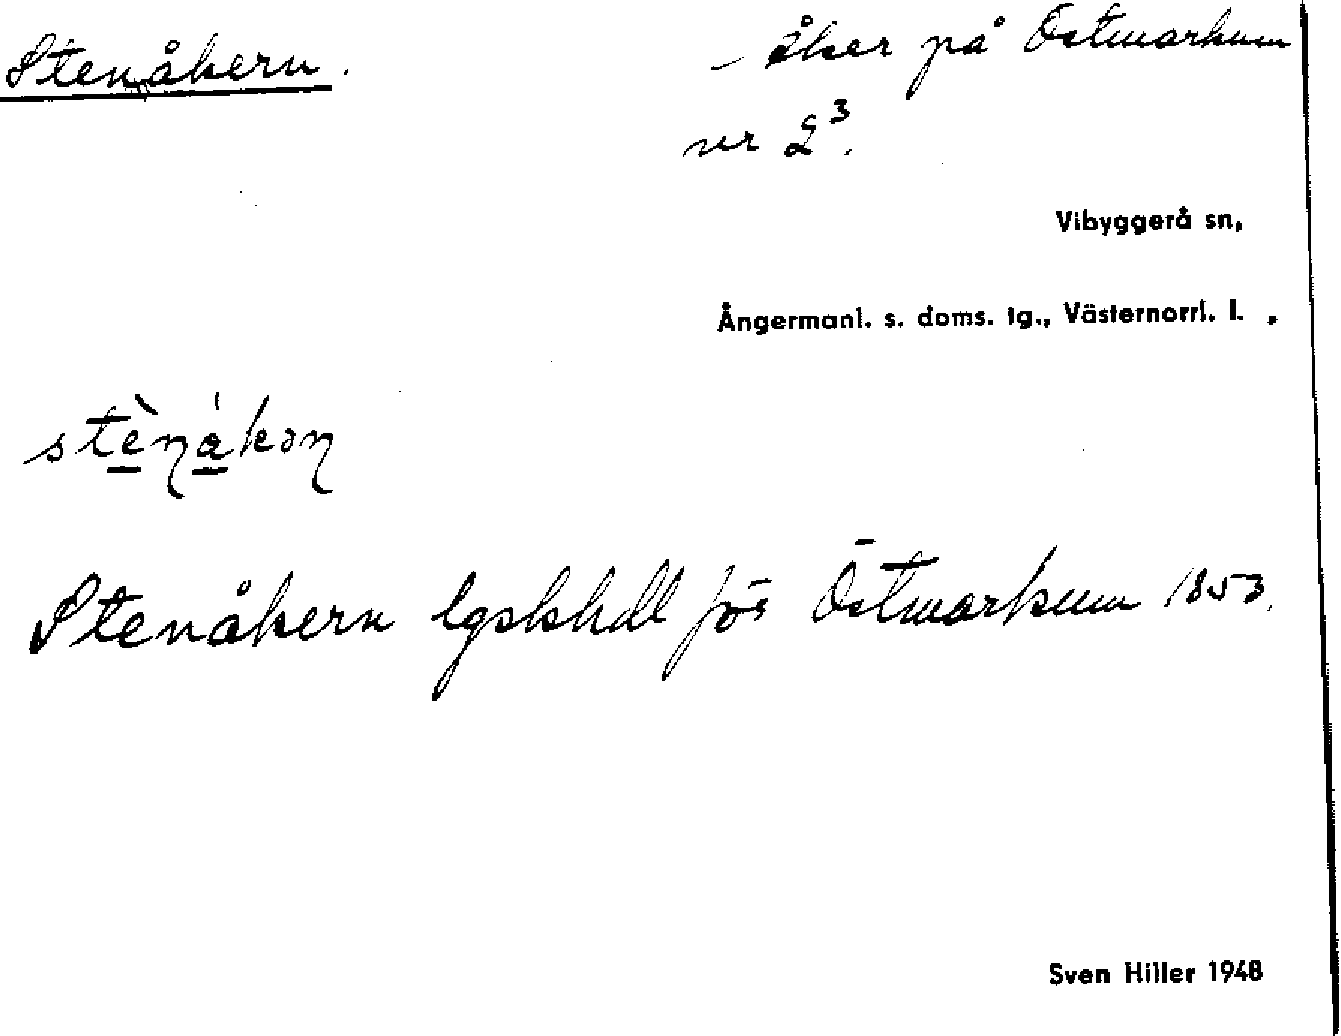 Stenåkern. – åker på Östmarkum
nr 2³.
Vibyggerå sn,
Ångermanl. s. doms. tg., Västernorrl. l. ,
stènákən
Stenåkern lgskhdl för Östmarkum 1853.
Sven Hiller 1948